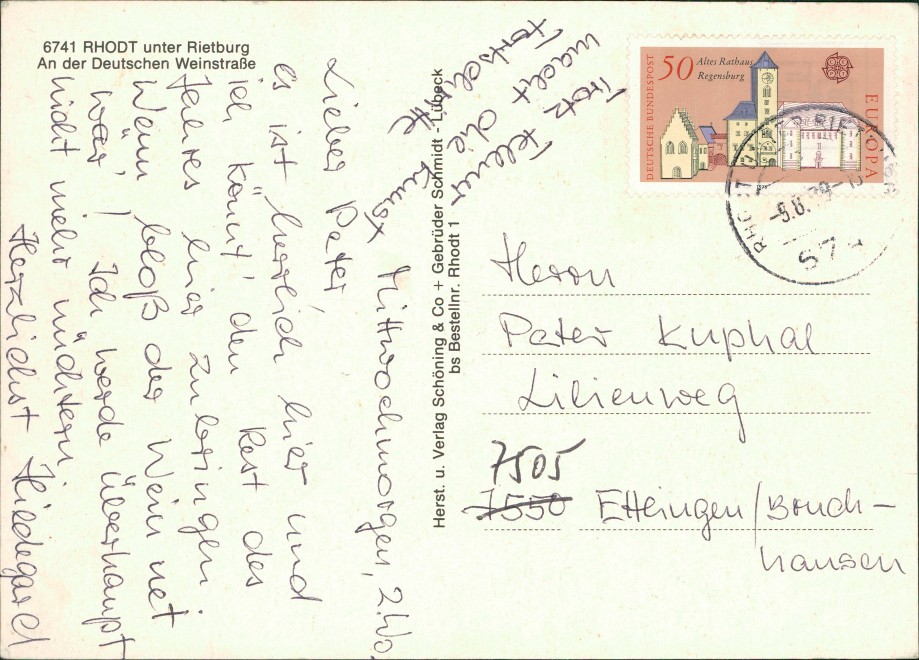 6741 RHODT unter Rietburg
An der Deutschen Weinstraße
Mittwochmorgen, 2.Wo.
Lieber Peter,
es ist herrlich hier und
ich könnt' den Rest des
Jahres hier zubringen.
Wenn bloß der Wein net
wär'! Ich werde überhaupt
nicht mehr nüchtern
Herzlichst Hildegard
Trotz
macht die Kunst
Fortschritte
Herst. u. Verlag Schöning & Co + Gebrüder Schmidt - Lübeck
bs Bestellnr. Rhodt 1
DEUTSCHE BUNDESPOST
50
Altes Rathaus
Regensburg
EUROPA
-9.8.79
Herrn
Peter Kuphal
Lilienweg
7505
7550 Ettlingen/Bruch-
hausen